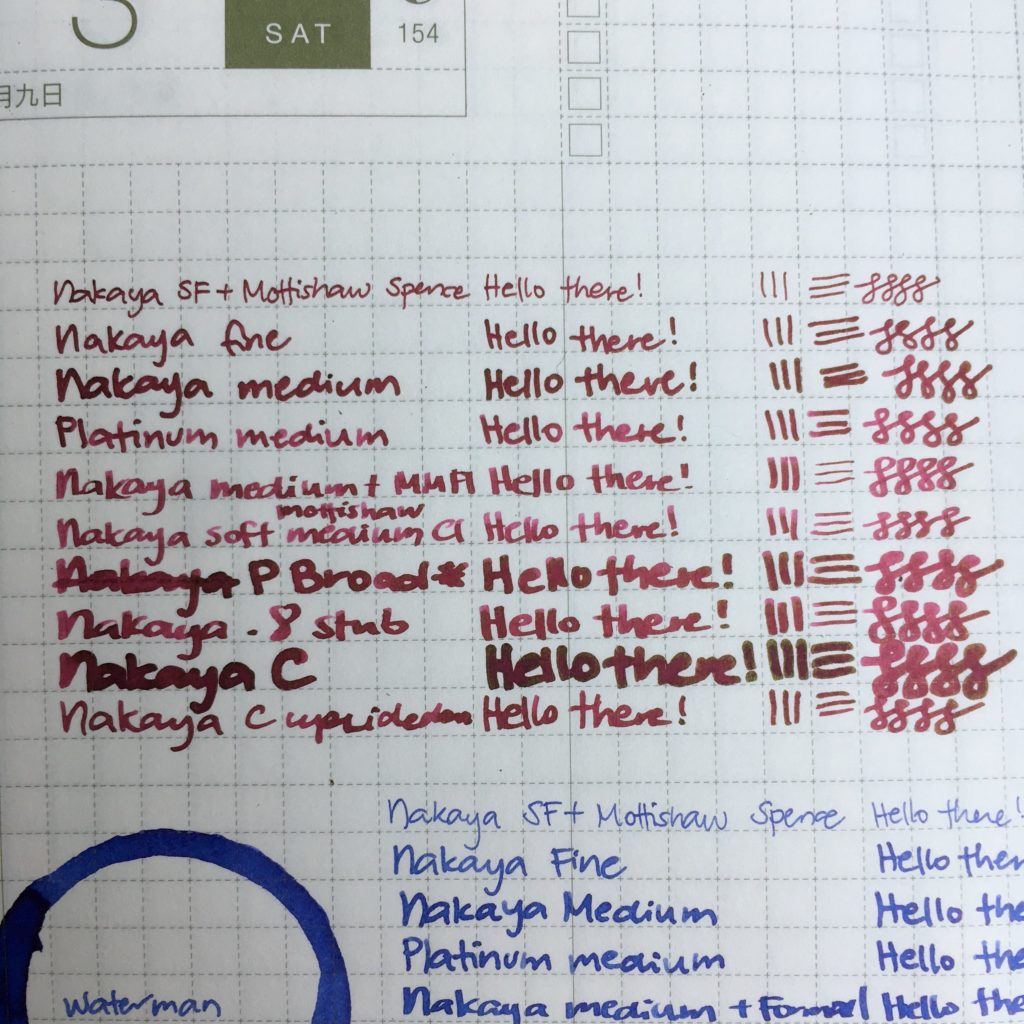 SAT
154
月九日
Nakaya SF + Mottishaw Spence Hello there!
Nakaya fine Hello there!
Nakaya medium Hello there!
Platinum medium Hello there!
Nakaya medium + MMFI Hello there!
mottishaw
Nakaya soft medium CI Hello there!
Nakaya P Broad* Hello there!
Nakaya .8 stub Hello there!
Nakaya C Hello there!
Nakaya C upside down Hello there!
Nakaya SF + Mottishaw Spence Hello there!
Nakaya Fine Hello ther
Nakaya Medium Hello the
Platinum medium Hello the
Waterman
Nakaya medium + Formal Hello the